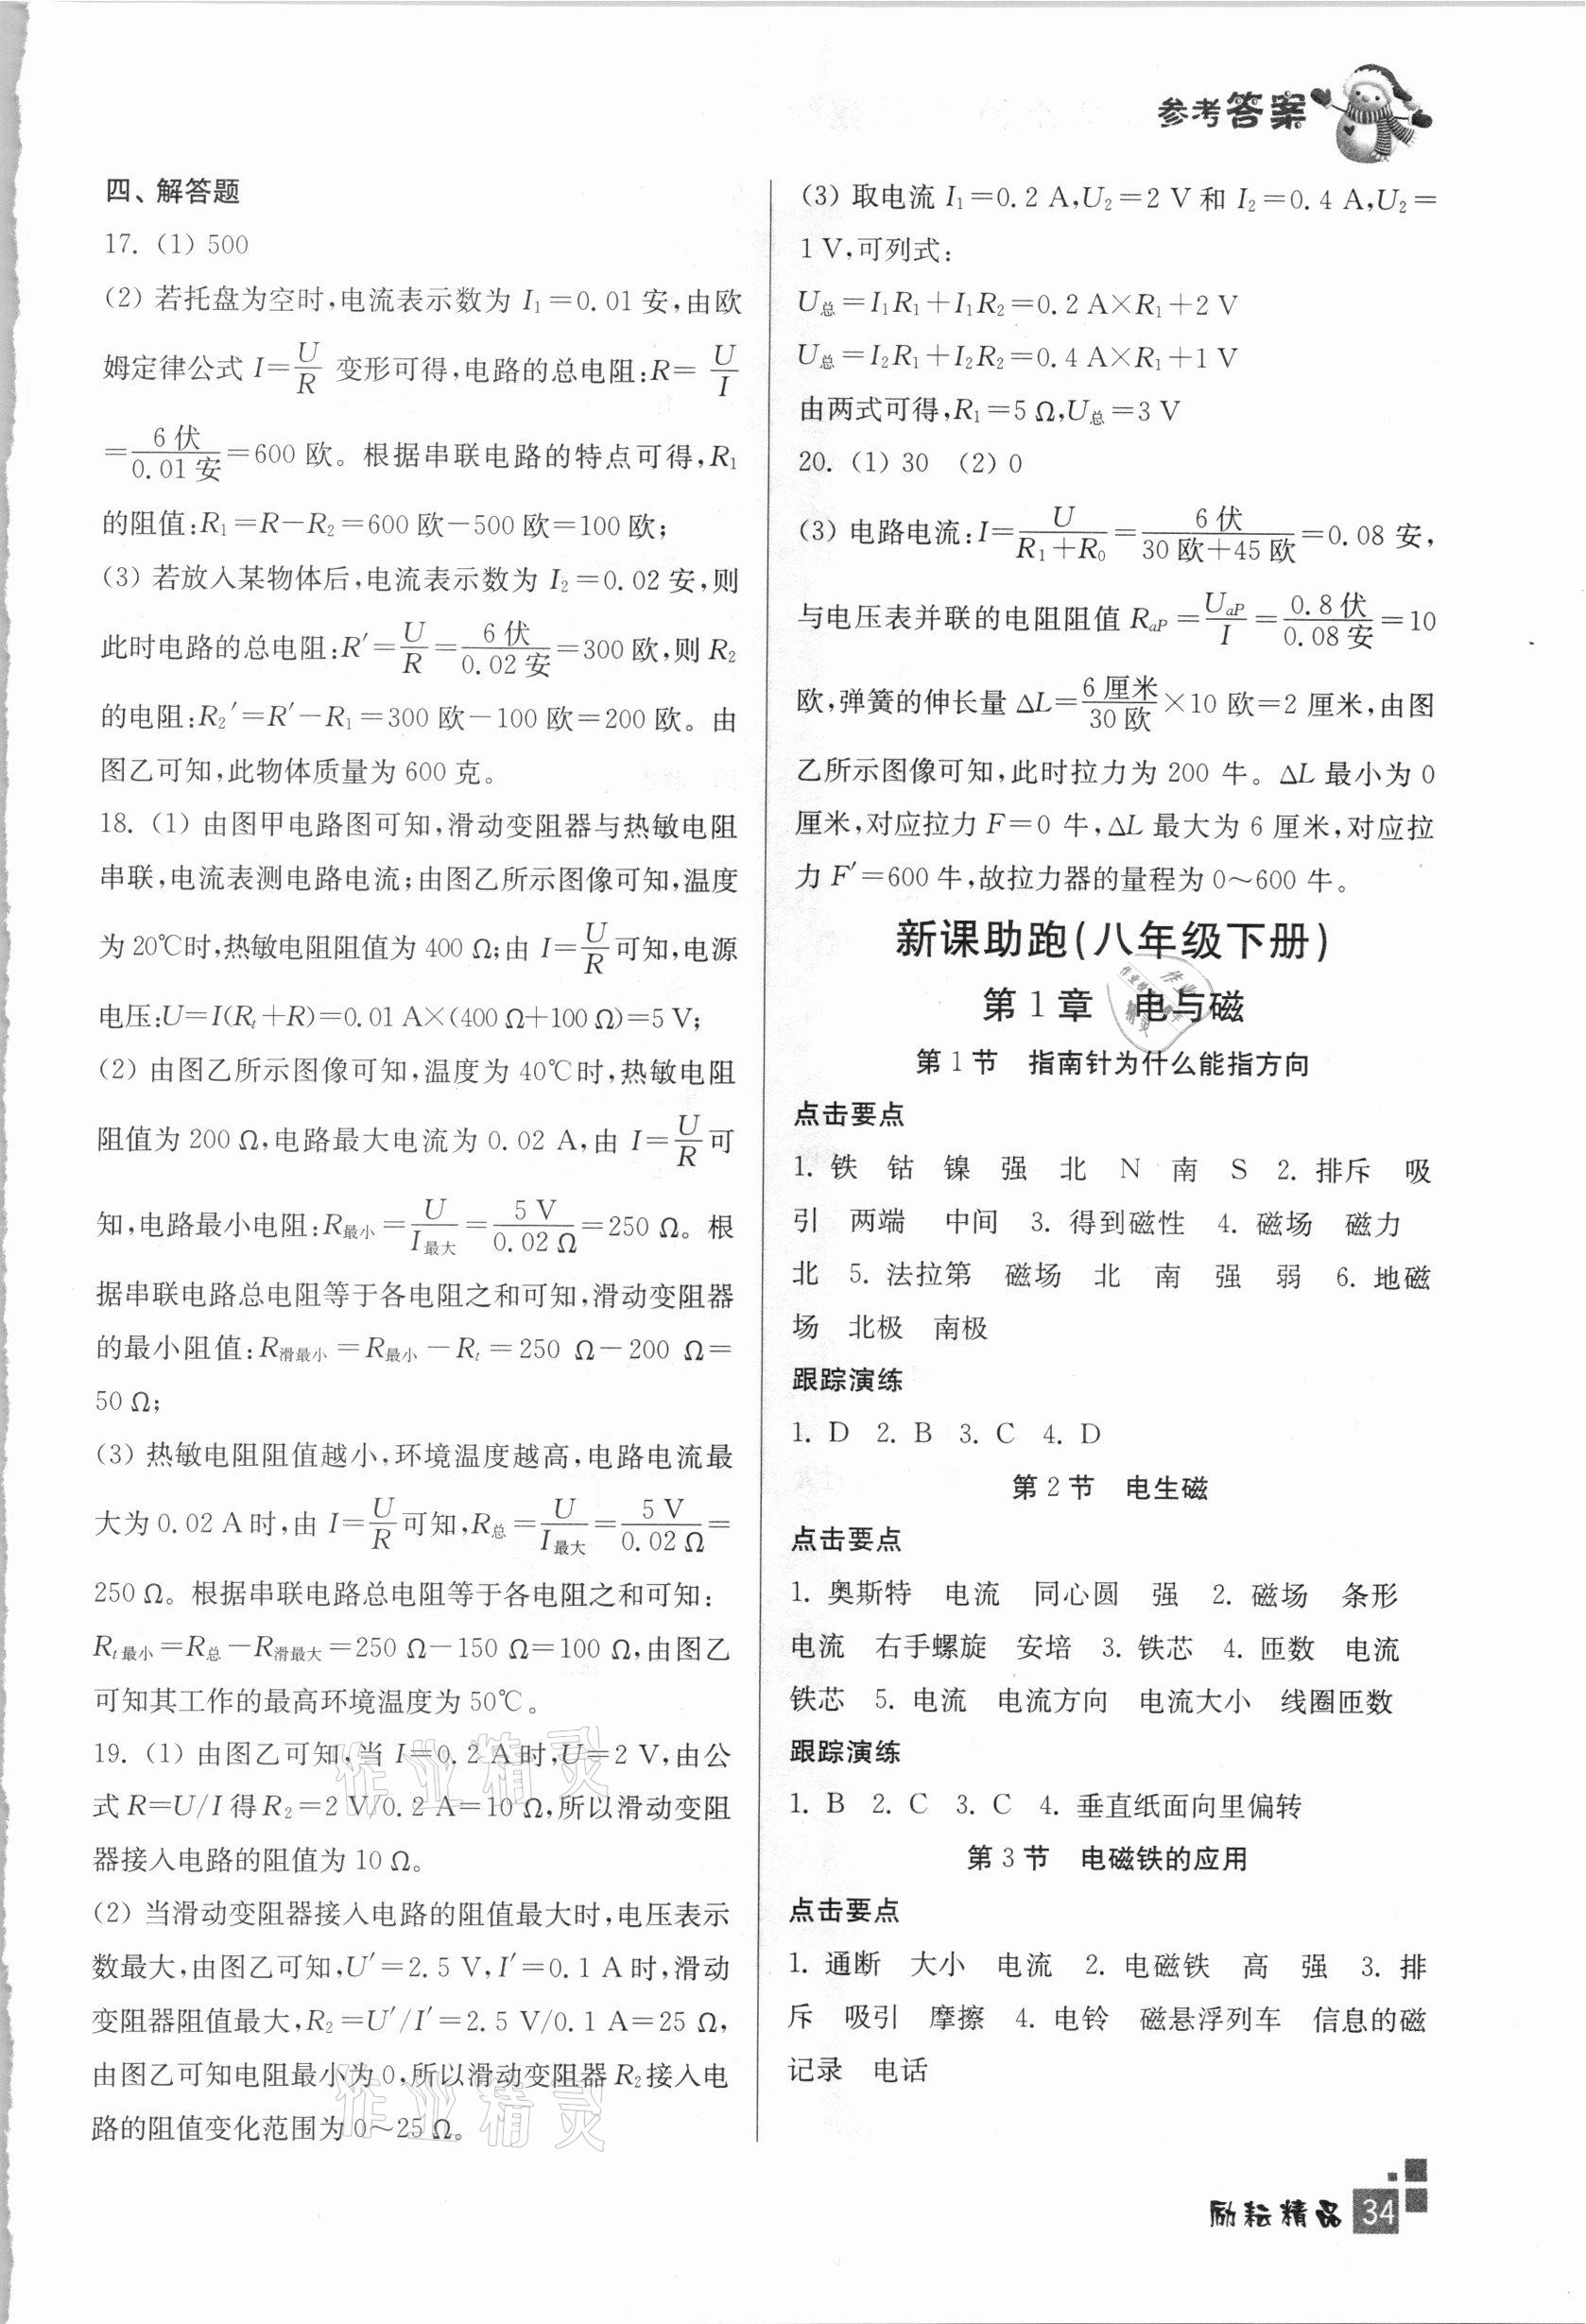 参考答案
四、解答题
17. (1) 500
(2) 若托盘为空时,电流表示数为 I₁=0.01 安,由欧
姆定律公式 I=U/R 变形可得,电路的总电阻:R=U/I
=6 伏/0.01 安=600 欧。根据串联电路的特点可得,R₁
的阻值:R₁=R-R₂=600 欧-500 欧=100 欧;
(3) 若放入某物体后,电流表示数为 I₂=0.02 安,则
此时电路的总电阻:R′=U/R=6 伏/0.02 安=300 欧,则 R₂
的电阻:R₂′=R′-R₁=300 欧-100 欧=200 欧。由
图乙可知,此物体质量为 600 克。
18. (1) 由图甲电路图可知,滑动变阻器与热敏电阻
串联,电流表测电路电流;由图乙所示图像可知,温度
为 20℃时,热敏电阻阻值为 400 Ω;由 I=U/R可知,电源
电压:U=I(Rt+R)=0.01 A×(400 Ω+100 Ω)=5 V;
(2) 由图乙所示图像可知,温度为 40℃时,热敏电阻
阻值为 200 Ω,电路最大电流为 0.02 A,由 I=U/R可
知,电路最小电阻:R最小=U/I最大=5 V/0.02 Ω=250 Ω。根
据串联电路总电阻等于各电阻之和可知,滑动变阻器
的最小阻值:R滑最小=R最小-Rt=250 Ω-200 Ω=
50 Ω;
(3) 热敏电阻阻值越小,环境温度越高,电路电流最
大为 0.02 A 时,由 I=U/R可知,R总=U/I最大=5 V/0.02 Ω=
250 Ω。根据串联电路总电阻等于各电阻之和可知:
Rt最小=R总-R滑最大=250 Ω-150 Ω=100 Ω,由图乙
可知其工作的最高环境温度为 50℃。
19. (1) 由图乙可知,当 I=0.2 A 时,U=2 V,由公
式 R=U/I 得 R₂=2 V/0.2 A=10 Ω,所以滑动变阻
器接入电路的阻值为 10 Ω。
(2) 当滑动变阻器接入电路的阻值最大时,电压表示
数最大,由图乙可知,U′=2.5 V,I′=0.1 A 时,滑动
变阻器阻值最大,R₂=U′/I′=2.5 V/0.1 A=25 Ω,
由图乙可知电阻最小为 0,所以滑动变阻器 R₂接入电
路的阻值变化范围为 0~25 Ω。
(3) 取电流 I₁=0.2 A,U₂=2 V 和 I₂=0.4 A,U₂=
1 V,可列式:
U总=I₁R₁+I₁R₂=0.2 A×R₁+2 V
U总=I₂R₁+I₂R₂=0.4 A×R₁+1 V
由两式可得,R₁=5 Ω,U总=3 V
20. (1) 30 (2) 0
(3) 电路电流:I=U/(R₁+R₀)=6 伏/(30 欧+45 欧)=0.08 安,
与电压表并联的电阻阻值 RaP=UaP/I=0.8 伏/0.08 安=10
欧,弹簧的伸长量 ΔL=6 厘米/30 欧×10 欧=2 厘米,由图
乙所示图像可知,此时拉力为 200 牛。ΔL 最小为 0
厘米,对应拉力 F=0 牛,ΔL 最大为 6 厘米,对应拉
力 F′=600 牛,故拉力器的量程为 0~600 牛。
新课助跑(八年级下册)
第 1 章 电与磁
第 1 节 指南针为什么能指方向
点击要点
1. 铁 钴 镍 强 北 N 南 S 2. 排斥 吸
引 两端 中间 3. 得到磁性 4. 磁场 磁力
北 5. 法拉第 磁场 北 南 强 弱 6. 地磁
场 北极 南极
跟踪演练
1. D 2. B 3. C 4. D
第 2 节 电生磁
点击要点
1. 奥斯特 电流 同心圆 强 2. 磁场 条形
电流 右手螺旋 安培 3. 铁芯 4. 匝数 电流
铁芯 5. 电流 电流方向 电流大小 线圈匝数
跟踪演练
1. B 2. C 3. C 4. 垂直纸面向里偏转
第 3 节 电磁铁的应用
点击要点
1. 通断 大小 电流 2. 电磁铁 高 强 3. 排
斥 吸引 摩擦 4. 电铃 磁悬浮列车 信息的磁
记录 电话
作业精灵
作业精灵
励耘精品 34